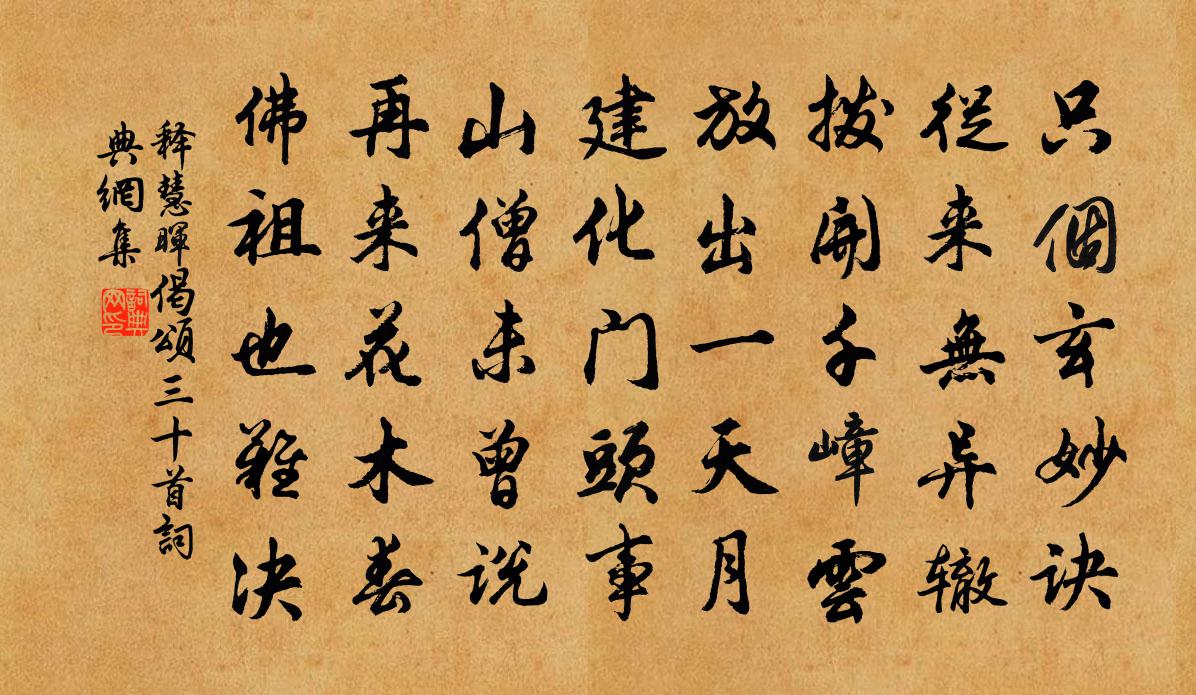 只個玄妙訣
從来無异辙
撥開千嶂雲
放出一天月
建化门頭事
山僧未曾説
再来花木春
佛祖也難决
释慧暉偈頌三十首詞
典網集
詞典
网印